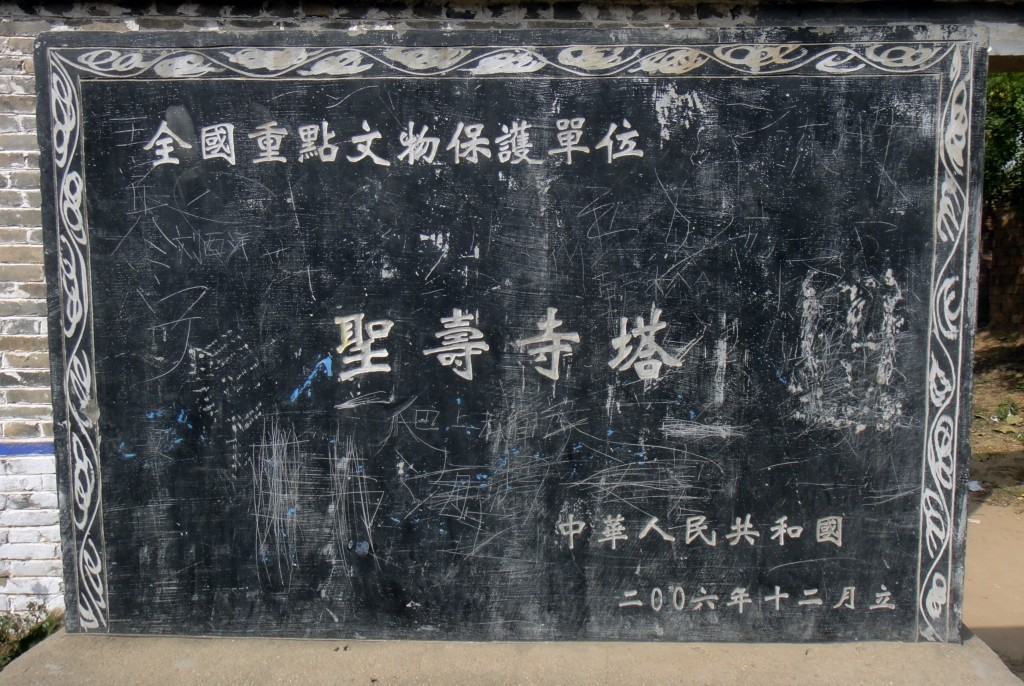 全國重點文物保護單位
聖壽寺塔
中華人民共和國
二00六年十二月立